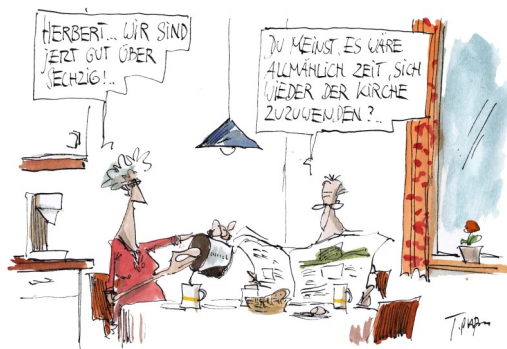 HERBERT... WIR SIND
JETZT GUT ÜBER
SECHZIG!..
DU MEINST, ES WÄRE
ALLMÄHLICH ZEIT, SICH
WIEDER DER KIRCHE
ZUZUWENDEN?..